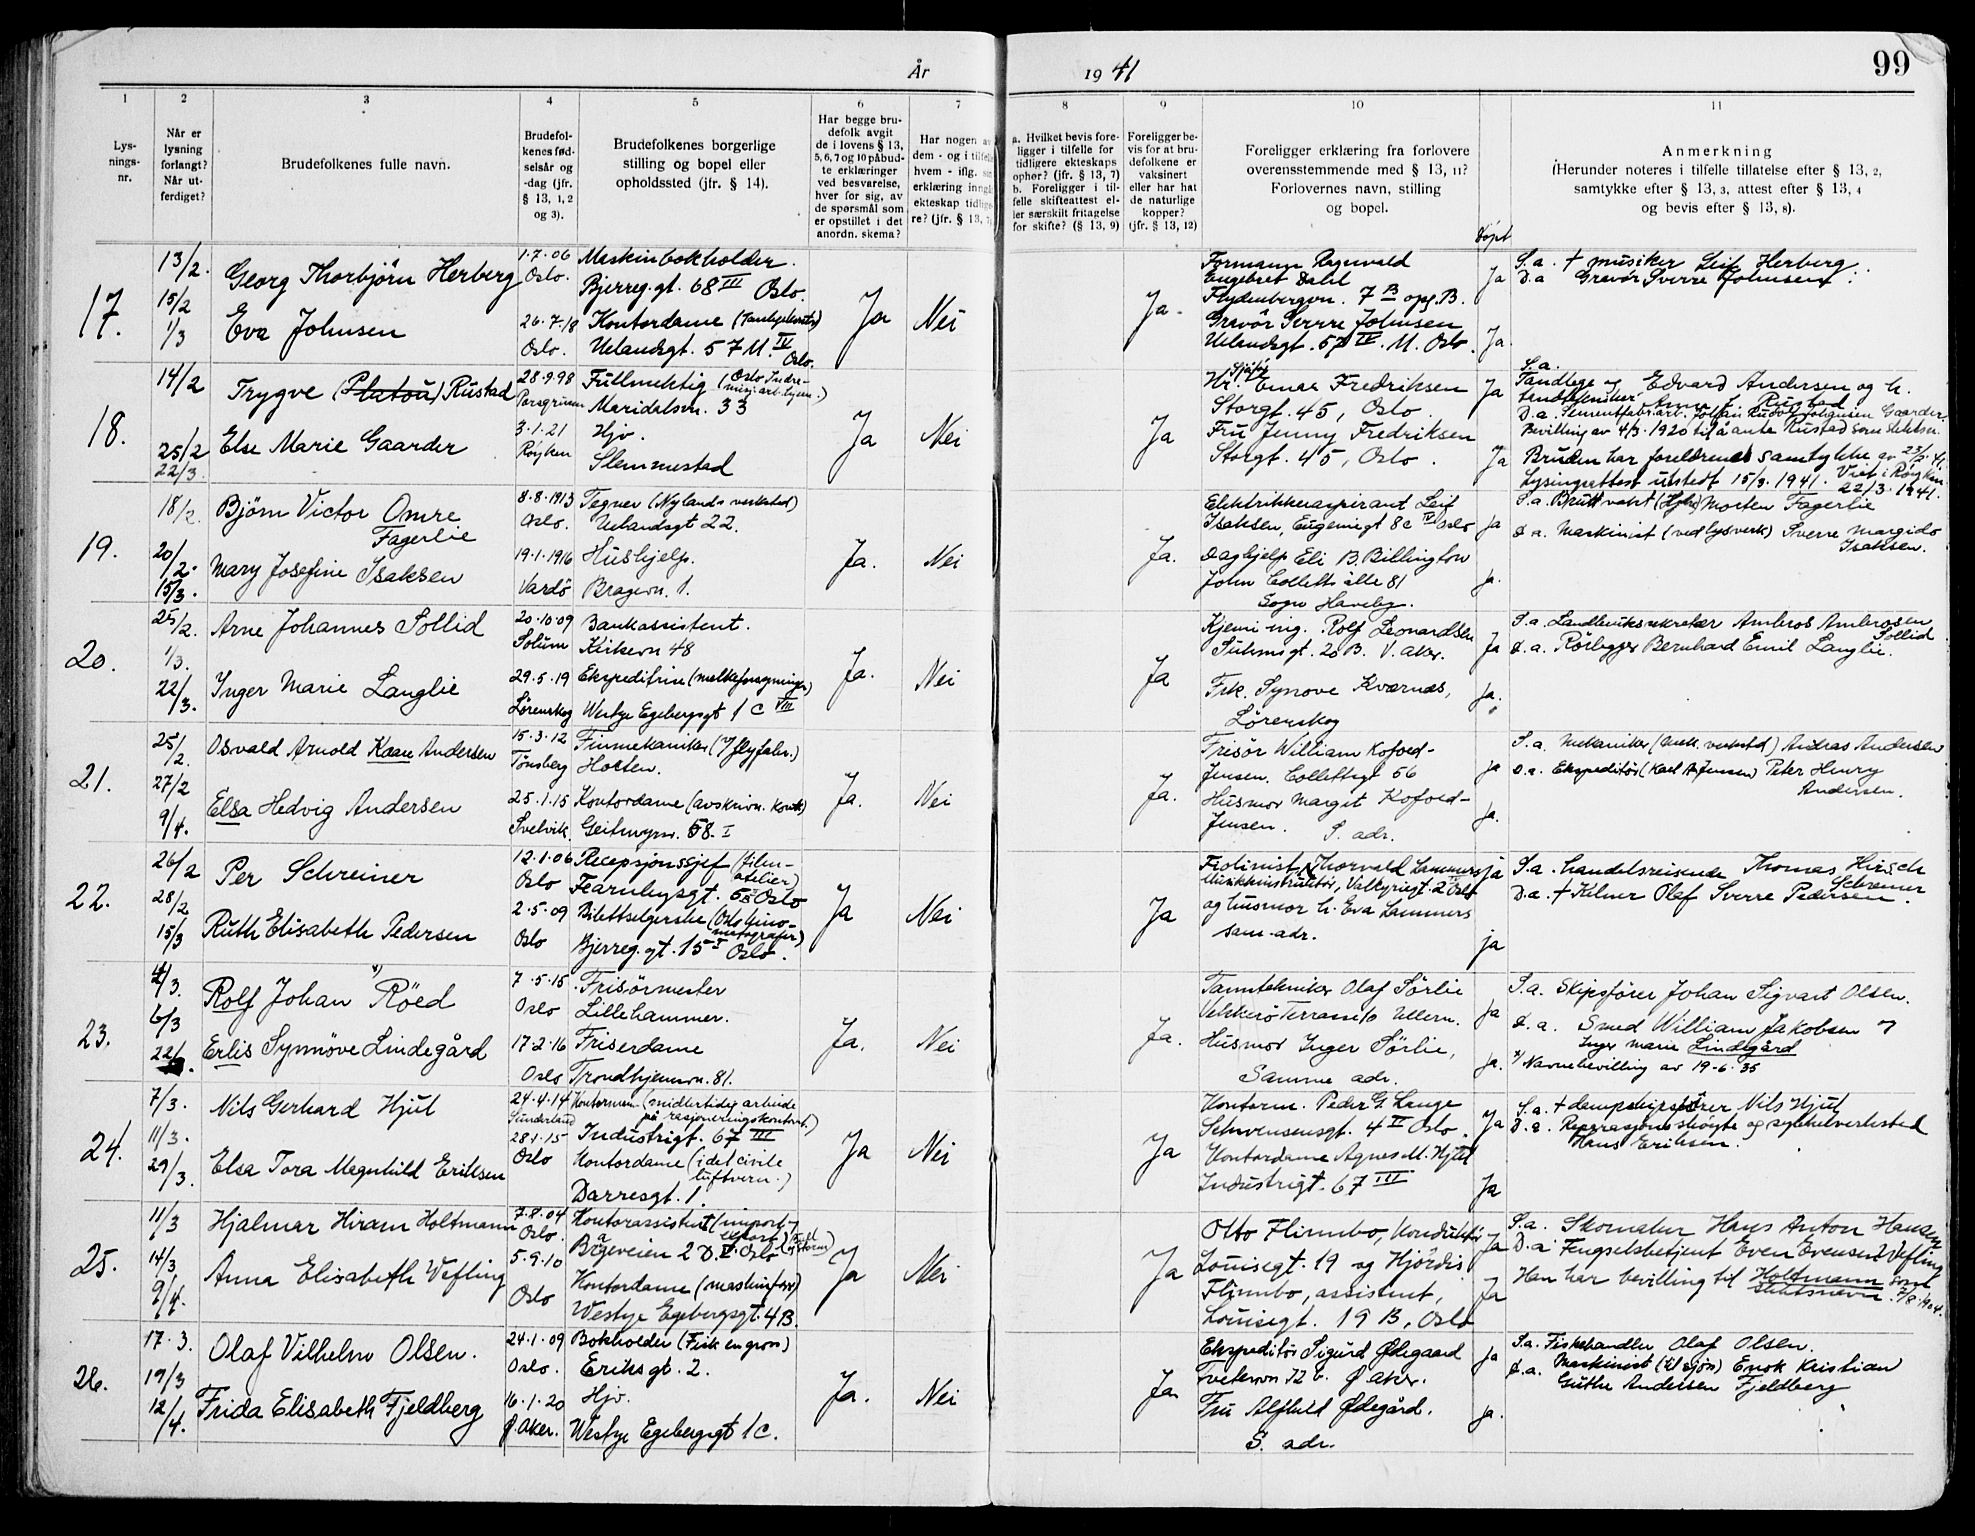 År 1941
99
1
2
3
4
5
6
7
8
9
10
11
Lys-
nings-
nr.
Når er
lysning
forlangt?
Når ut-
ferdiget?
Brudefolkenes fulle navn.
Brudefol-
kenes fød-
selsår og
-dag (jfr.
§ 13, 1, 2
og 3).
Brudefolkenes borgerlige
stilling og bopel eller
opholdssted (jfr. § 14).
Har begge bru-
defolk avgit
de i lovens § 13,
5, 6, 7 og 10 påbud-
te erklæringer
ved besvarelse,
hver for sig, av
de spørsmål som
er opstillet i det
anordn. skema?
Har nogen av
dem - og i tilfelle
hvem - iflg. sin
erklæring inngått
ekteskap tidlige-
re? (jfr. § 13,
a. Hvilket bevis fore-
ligger i tilfelle for
tidligere ekteskaps
ophør? (jfr. § 13, 7)
b. Foreligger i til-
felle skifteattest el-
ler særskilt fritagelse
for skifte? (§ 13, 9)
Foreligger be-
vis for at bru-
defolkene er
vaksinert
eller har hat
de naturlige
kopper?
(jfr. § 13, 12)
Foreligger erklæring fra forlovere
overensstemmende med § 13, 11?
Forlovernes navn, stilling
og bopel.
Døpt
Anmerkning
(Herunder noteres i tilfelle tillatelse efter § 13, 2,
samtykke efter § 13, 3, attest efter § 13, 4
og bevis efter § 13, 8).
17.
13/2.
15/2
1/3
Georg Thorbjörn Herberg
Eva Johnsen
1.7.06
Oslo.
26.7.18
Oslo.
Maskinbokholder.
Bjerreg.gt. 68 III Oslo.
Kontordame
Uelandsgt. 57 M. IV Oslo.
Ja
Nei
Ja.
Formann Ragnvald
Engebret Dahl
Flydenborgvn. 7 B opg. B.
Gravör Sverre Johnsen
Uelandsgt. 57 IV. M. Oslo.
Ja
Ja.
S.a. † musiker Leif Herberg.
D.a Gravör Sverre Johnsen.
18.
14/2
25/2
22/3.
Trygve (Platou) Rustad
Else Marie Gaarder
28.9.98
Porsgrunn
3.1.21
Röyken
Fullmektig (Oslo Indre-
misj. arb.)
Maridalsvn. 33
Hjv.
Slemmestad
Ja
Nei
Ja
Hr. Einar Fredriksen
Storgt. 45, Oslo.
Fru Jenny Fredriksen
Storgt. 45, Oslo.
Ja
Ja
S.a.
Tandlege og Edvard Andersen og h.
tandtekniker Anna L. Rustad
D.a. Sementfabr.arb. Johan Rudolf Johansen Gaarder.
Bevilling av 4/3. 1920 til å anta Rustad som slektsn.
Bruden har foreldrenes samtykke av 23/2.41.
Lysingsattest utstedt 15/3.1941. Viet i Röyken
22/3.1941.
19.
18/2.
20/2.
15/3.
Björn Victor Omre
Fagerlie
Mary Josefine Isaksen
8.8.1913
Oslo.
19.1.1916
Vardö
Tegner (Nylands verksted)
Uelandsgt 22.
Hushjelp.
Bragevn. 1.
Ja.
Nei
Ja.
Elektrikeraspirant Leif
Isaksen, Eugeniegt 8c IV Oslo
Daghjelp Eli B. Billington
John Colletts alle 81
Sogn Haveby.
Ja
Ja.
S.a. Morten Fagerlie
D.a. Maskinist (ved lysverk) Sverre Margido
Isaksen.
20.
25/2.
1/3.
22/3.
Arne Johannes Sollid
Inger Marie Langlie
20.10.09
Solum
29.5.19
Lörenskog
Bankassistent.
Kirkevn 48
Ekspeditrise (melkeforsyningen)
Westye Egebergsgt 1 C VIII
Ja.
Nei
Ja
Kjemi ing. Rolf Leonardsen
Suhmsgt. 20 B. V. Aker.
Frk. Synove Kværnæs,
Lörenskog
Ja
Ja.
S.a. Landbrukssekretær Ambros Ambrosen
Sollid
D.a. Rörlegger Bernhard Emil Langlie.
21.
25/2.
27/2
9/4.
Osvald Arnold Kaare Andersen
Elsa Hedvig Andersen
15.3.12
Tönsberg
25.1.15
Svelvik
Finmekaniker (flyfabr.)
Horten.
Kontordame (avskrivn. kont.)
Geitmyrsv. 58. I
Ja.
Nei
Ja.
Frisör William Kofoed-
Jensen. Collettsgt 56
Husmor Margit Kofoed-
Jensen. S. adr.
Ja
Ja.
S.a. Mekaniker (mek. verksted) Andras Andersen
D.a. Ekspeditör (Karl A. Jensen) Peter Henry
Andersen.
22.
26/2
28/2
15/3
Per Schreiner
Ruth Elisabeth Pedersen
12.1.06
Oslo
2.5.09
Oslo
Recepsjonssjef (film-
atelier)
Fearnleysgt. 5 Oslo
Bilettselgerske (Oslo kino-
matografer)
Bjerreg.gt. 15 I Oslo.
Ja
Nei
Ja
Fiolinist, Thorvald Lammers
Musikkinstruktör, Valkyriegt. 2 Oslo
og husmor h. Eva Lammers
sam. adr.
ja
ja
S.a. handelsreisende Thomas Hirsch
Schreiner
D.a. † Kelner Olaf Sverre Pedersen.
23.
4/3.
6/3
22/3.
Rolf Johan Röed
Erlis Synnöve Lindegård
7.5.15
Oslo
17.2.16
Oslo
Frisörmester
Lillehammer.
Friserdame
Trondhjemsvn. 81.
Ja.
Nei
Ja.
Tanntekniker Olaf Sörlie
Vekkerö Terrasse 10 Ullern.
Husmor Inger Sörlie,
Samme adr.
Ja
Ja.
S.a. Skipsförer Johan Sigvart Olsen.
D.a. Smed William Jakobsen
Inger Marie Lindegård
*) Navnebevilling av 19-6-35
24.
7/3.
11/3.
29/3.
Nils Gerhard Hjul
Elsa Tora Magnhild Eriksen
24.4.14
Sunderland
28.1.15
Oslo
Kontormann (midlertidig arbeide
på rasjoneringskontoret.)
Industrigt. 67 III
Kontordame (i det civile
luftvern.)
Darresgt. 1.
Ja
Nei
Ja
Kontorm. Peder G. Lange
Schwensensgt. 4 II Oslo.
Kontordame Agnes M. Hjul
Industrigt. 67 III
Ja
Ja
S.a. † dampskipsförer Nils Hjul
D.a. Reparasjon sköyte og sykkelverksted
Hans Eriksen.
25.
11/3
14/3
9/4.
Hjalmar Hiram Holtmann
Anna Elisabeth Vefling
7.8.04
Oslo.
5.9.10
Oslo
Kontorassistent (import-
Bögeveien 2 D. V. Oslo
Kontordame (maskinforr.)
Westye Egebergsgt. 4 B.
Ja
Nei
Ja
Otto Flinnbo, Konduktör
Louisegt. 19 og Hjördis
Flinnbo, assistent,
Louisegt. 19 B, Oslo
Ja
Ja
S.a. Skomaker Hans Anton Hansen
D.a Fengselsbetjent Even Evensen Vefling
Han har bevilling til Holtmann som
slektsnavn. 7/8.1904.
26.
17.3
19/3
12/4.
Olaf Vilhelm Olsen.
Frida Elisabeth Fjeldberg
24.1.09
Oslo.
16.1.20
Ø. Aker.
Bokholder (Fisk engros)
Eriksgt. 2.
Hjv.
Westye Egebergsgt 1 C.
Ja.
Nei
Ja.
Ekspeditör Sigurd Ødegaard
Tvetenvn 72 b. Ø Aker.
Fru Alfhild Ødegård.
S. adr.
Ja
Ja.
S.a. Fiskehandler Olaf Olsen.
D.a. Maskinist (til sjös) Enok Kristian
Guthe Andersen Fjeldberg